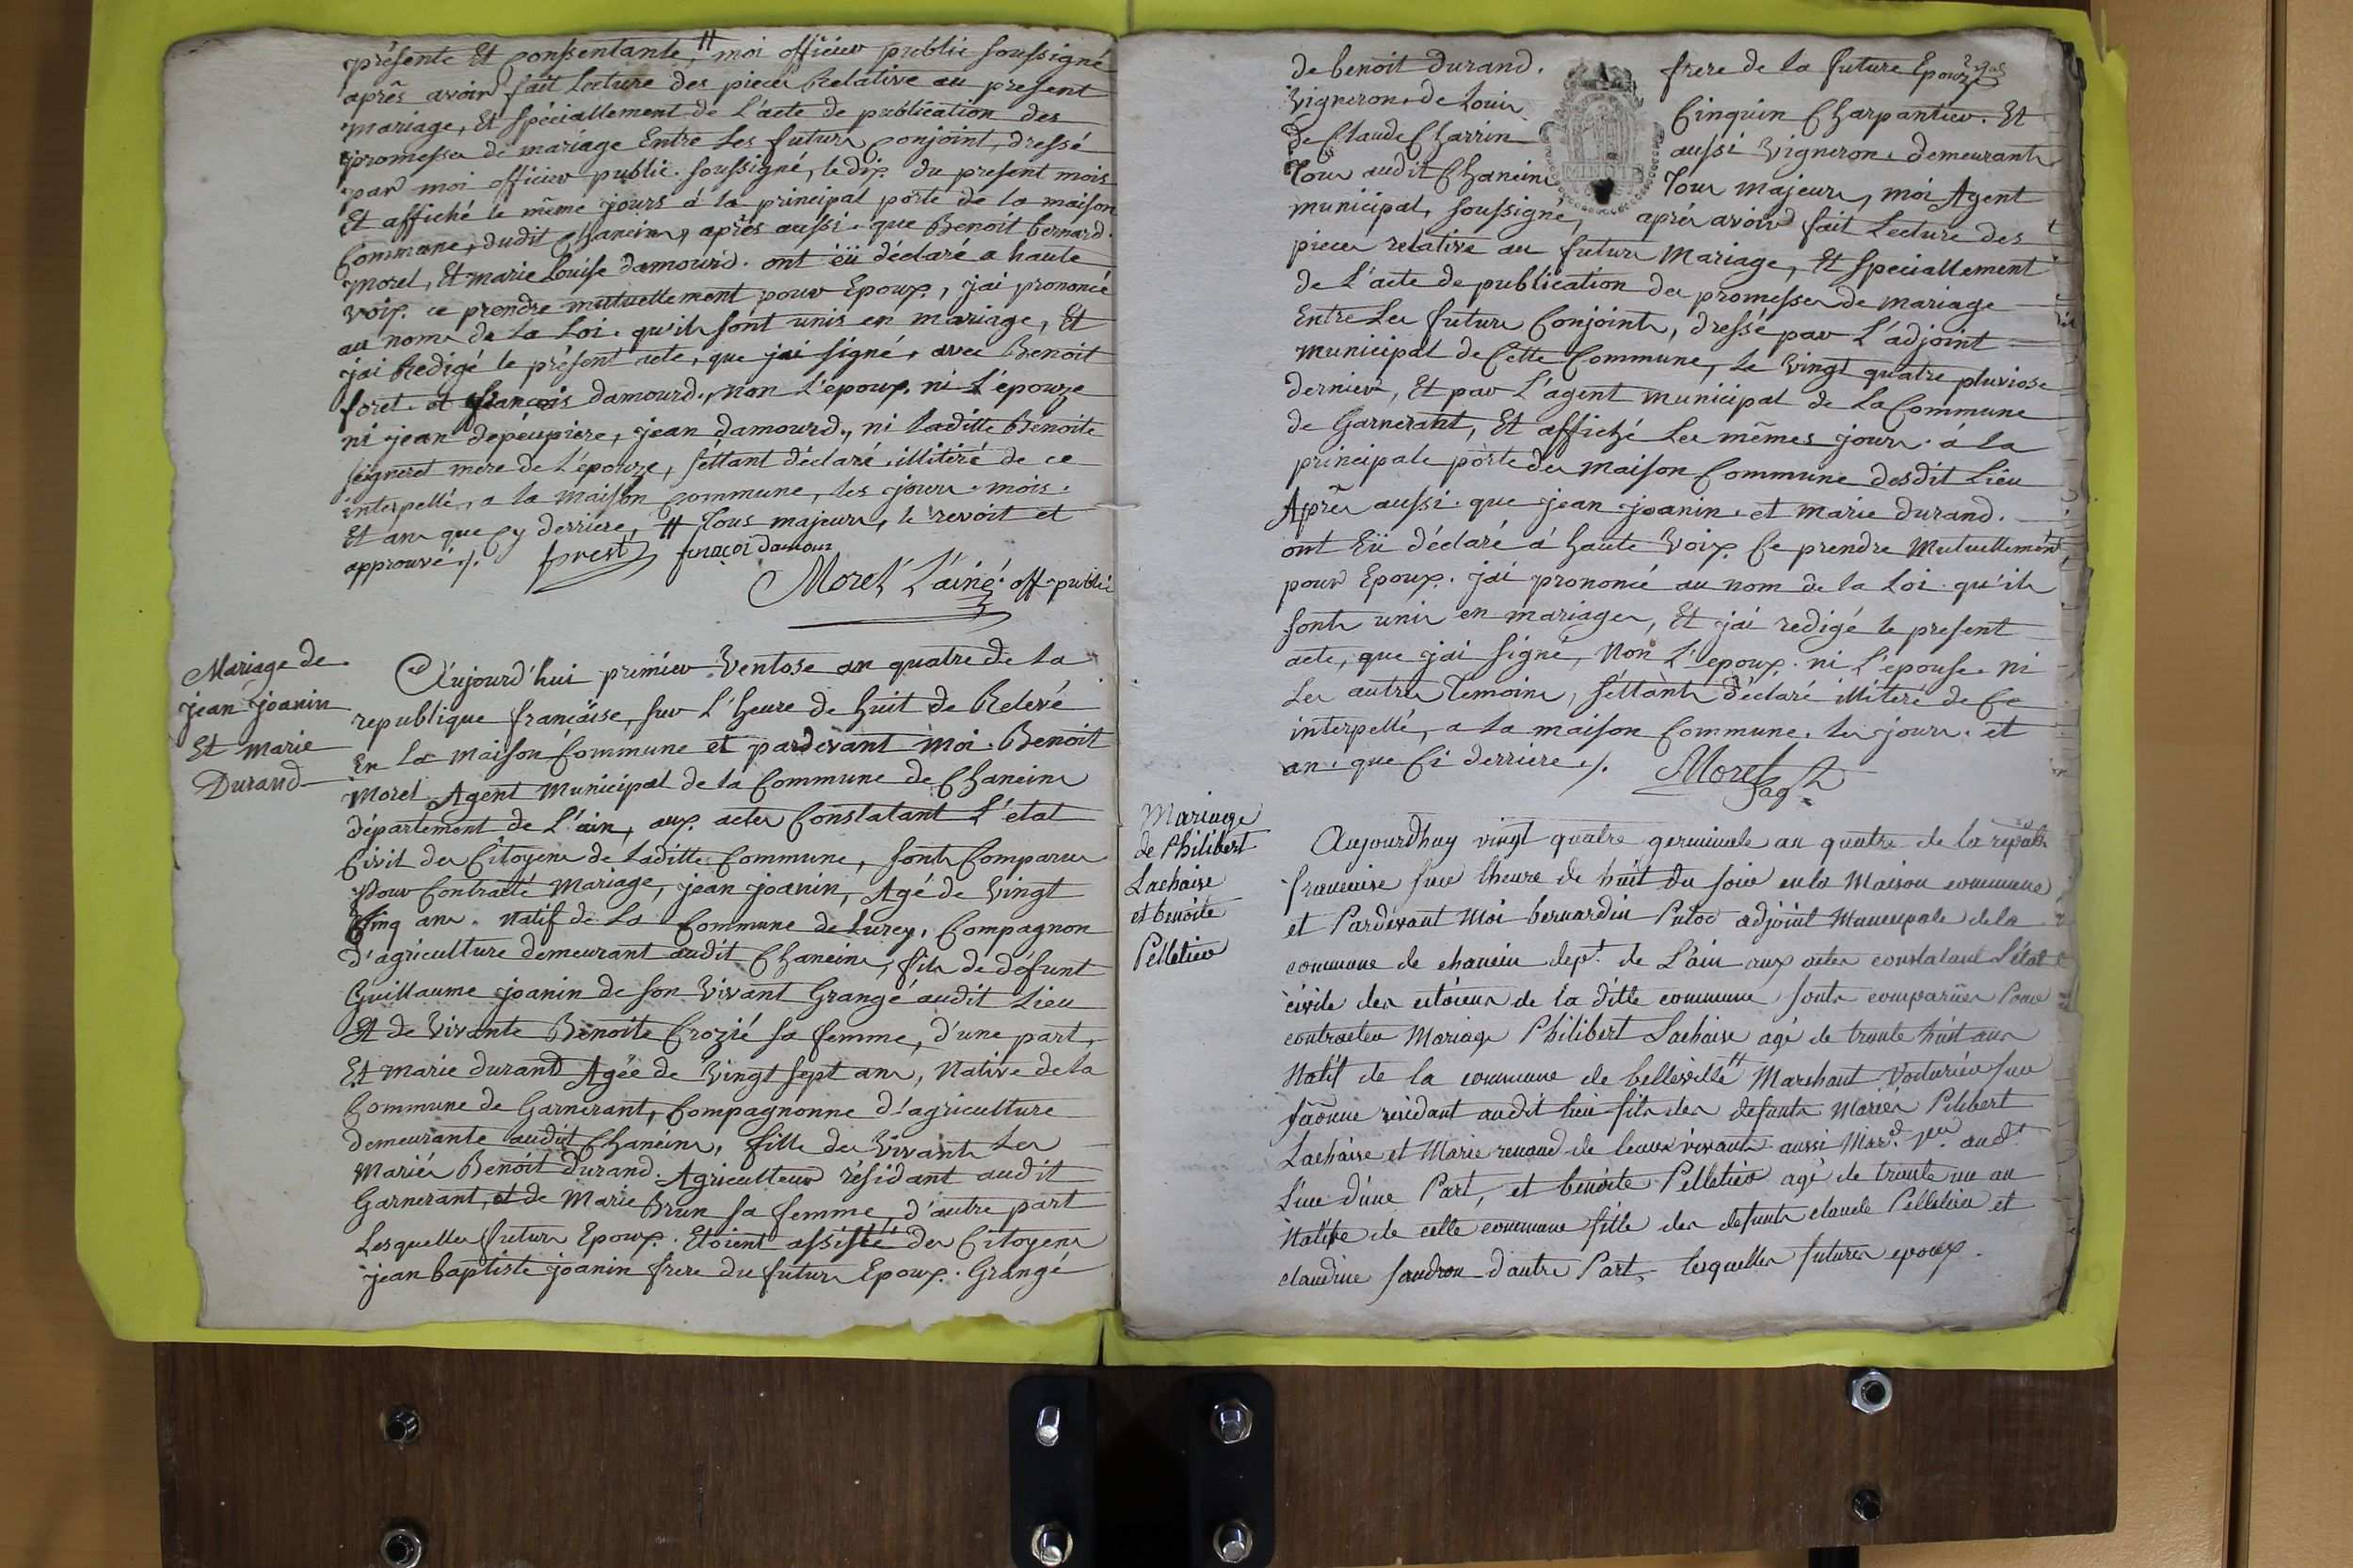 présente Et consentante, # moi officier public soussigné
après avoir fait Lecture des pieces Relative au present
mariage, Et spéciallement de L'acte de publication des
promesses de mariage Entre Les futurs conjoint, dressé
par moi officier public soussigné, le dix du present mois
Et affiché le même jours á la principal porte de la maison
Commune, dudit Chaneins, après aussi que Benoit bernard
morel, Et marie Louise damourd. ont ëü déclaré a haute
voix ce prendre mutuellement pour Epoux, jai prononcé
au nom de la Loi qu'ils sont unis en mariage, Et
jai Redigé le présent acte, que jai signé, avec Benoit
foret et françois damourd, non L'epoux ni L'epouze
ni jean depéupiere, jean damourd, ni laditte Benoite
seigneret mere de L'epouze, séttant déclaré illitéré de ce
interpellé, a la maison commune, les jours mois
Et ans que cy derriere, # Tous majeurs, le revoit et
approuvé ./. forest françoi damour
Morel L'ainé off public
Mariage de
jean joanin
Et marie
Durand
Aujourd'hui primier Ventose an quatre de la
republique françäise, sur L'heure de huit de Relevé
En la maison Commune et pardevant moi Benoit
Morel Agent Municipal de la Commune de Chaneins
département de L'ain, aux actes Constatant L'état
Civil des Citoyens de laditte Commune, sonts Comparus
Pour Contracté Mariage, jean joanin, Agé de Vingt
Cinq ans natif de La Commune de Lurcy, Compagnon
d'agriculture demeurant audit Chaneins, fils de défunt
Guillaume joanin de son Vivant Grangé audit Lieu
Et de Vivante Benoite Crozié sa femme, d'une part,
Et marie durand Agée de Vingt sept ans, Native de la
Commune de Garnerant, Compagnonne d'agriculture
demeurante audit Chanéins, fille des Vivants Les
Mariés Benoit Durand Agriculteur résidant audit
Garnerant, et de Marie Brun sa femme, d'autre part
Lesquelles futurs Epoux Etoient assisté des Citoyens
jean baptiste joanin frere du futurs Epoux Grangé
de benoit durand. frere de la future Epouze
Vigneron, de Louis Cinquin Charpantier. Et
de Claude Charrin aussi Vigneron demeurants
Tous audit Chaneins Tous majeurs, moi Agent
MINUTE
municipal, soussigné, aprés avoir fait Lecture des
pieces relative au futurs Mariage, Et speciallement
de L'acte de publication des promesses de mariage
Entre Les futurs Conjoints, dressé par L'adjoint
municipal de Cette Commune, Le Vingt quatre pluviose
dernier, Et par L'agent municipal de La Commune
de Garnerant, Et affiché Les mêmes jours á la
principale porte des maison Commune desdit Lieu
Après aussi que jean joanin et marie durand.
ont Eü déclaré á haute Voix Ce prendre Mutuellement
pour Epoux. jai prononcé au nom de la Loi qu'ils
sonts unis en mariages, Et jai redigé le present
acte, que jai signé, Non L'epoux ni L'epouse ni
Les autres Temoins, séttants déclaré illitéré de Ce
interpellé, a la maison Commune les jours et
an que Ci derriere ./. Morel
agt
Mariage
de Philibert
Lachaise
et benoite
Pelletier
Aujourdhuy vingt quatre germinale an quatre de la republ
francaise sur lheure de huit du soir en la Maison commune
et Pardevant Moi bernardin Putod adjoint Municipale de la
commune de chanein dept. de L'ain aux actes constatant L'état
civile des citoiens de la ditte commune sonts comparües Pour
contracter Mariage Philibert Lachaise agé de trante huit ans
Natif de la commune de belleville # Marchant voiturier sur
saônne residant audit lieu fils des defunts Mariés Pilibert
Lachaise et Marie renaud de leurs vivants aussi Mard. sur audt.
L'ieu d'une Part, et benoite Pelletier agé de trante un an
Native de celle commune fille des defunts claude Pelletier et
claudine sandron d'autre Part, lesquelles futures epoux.